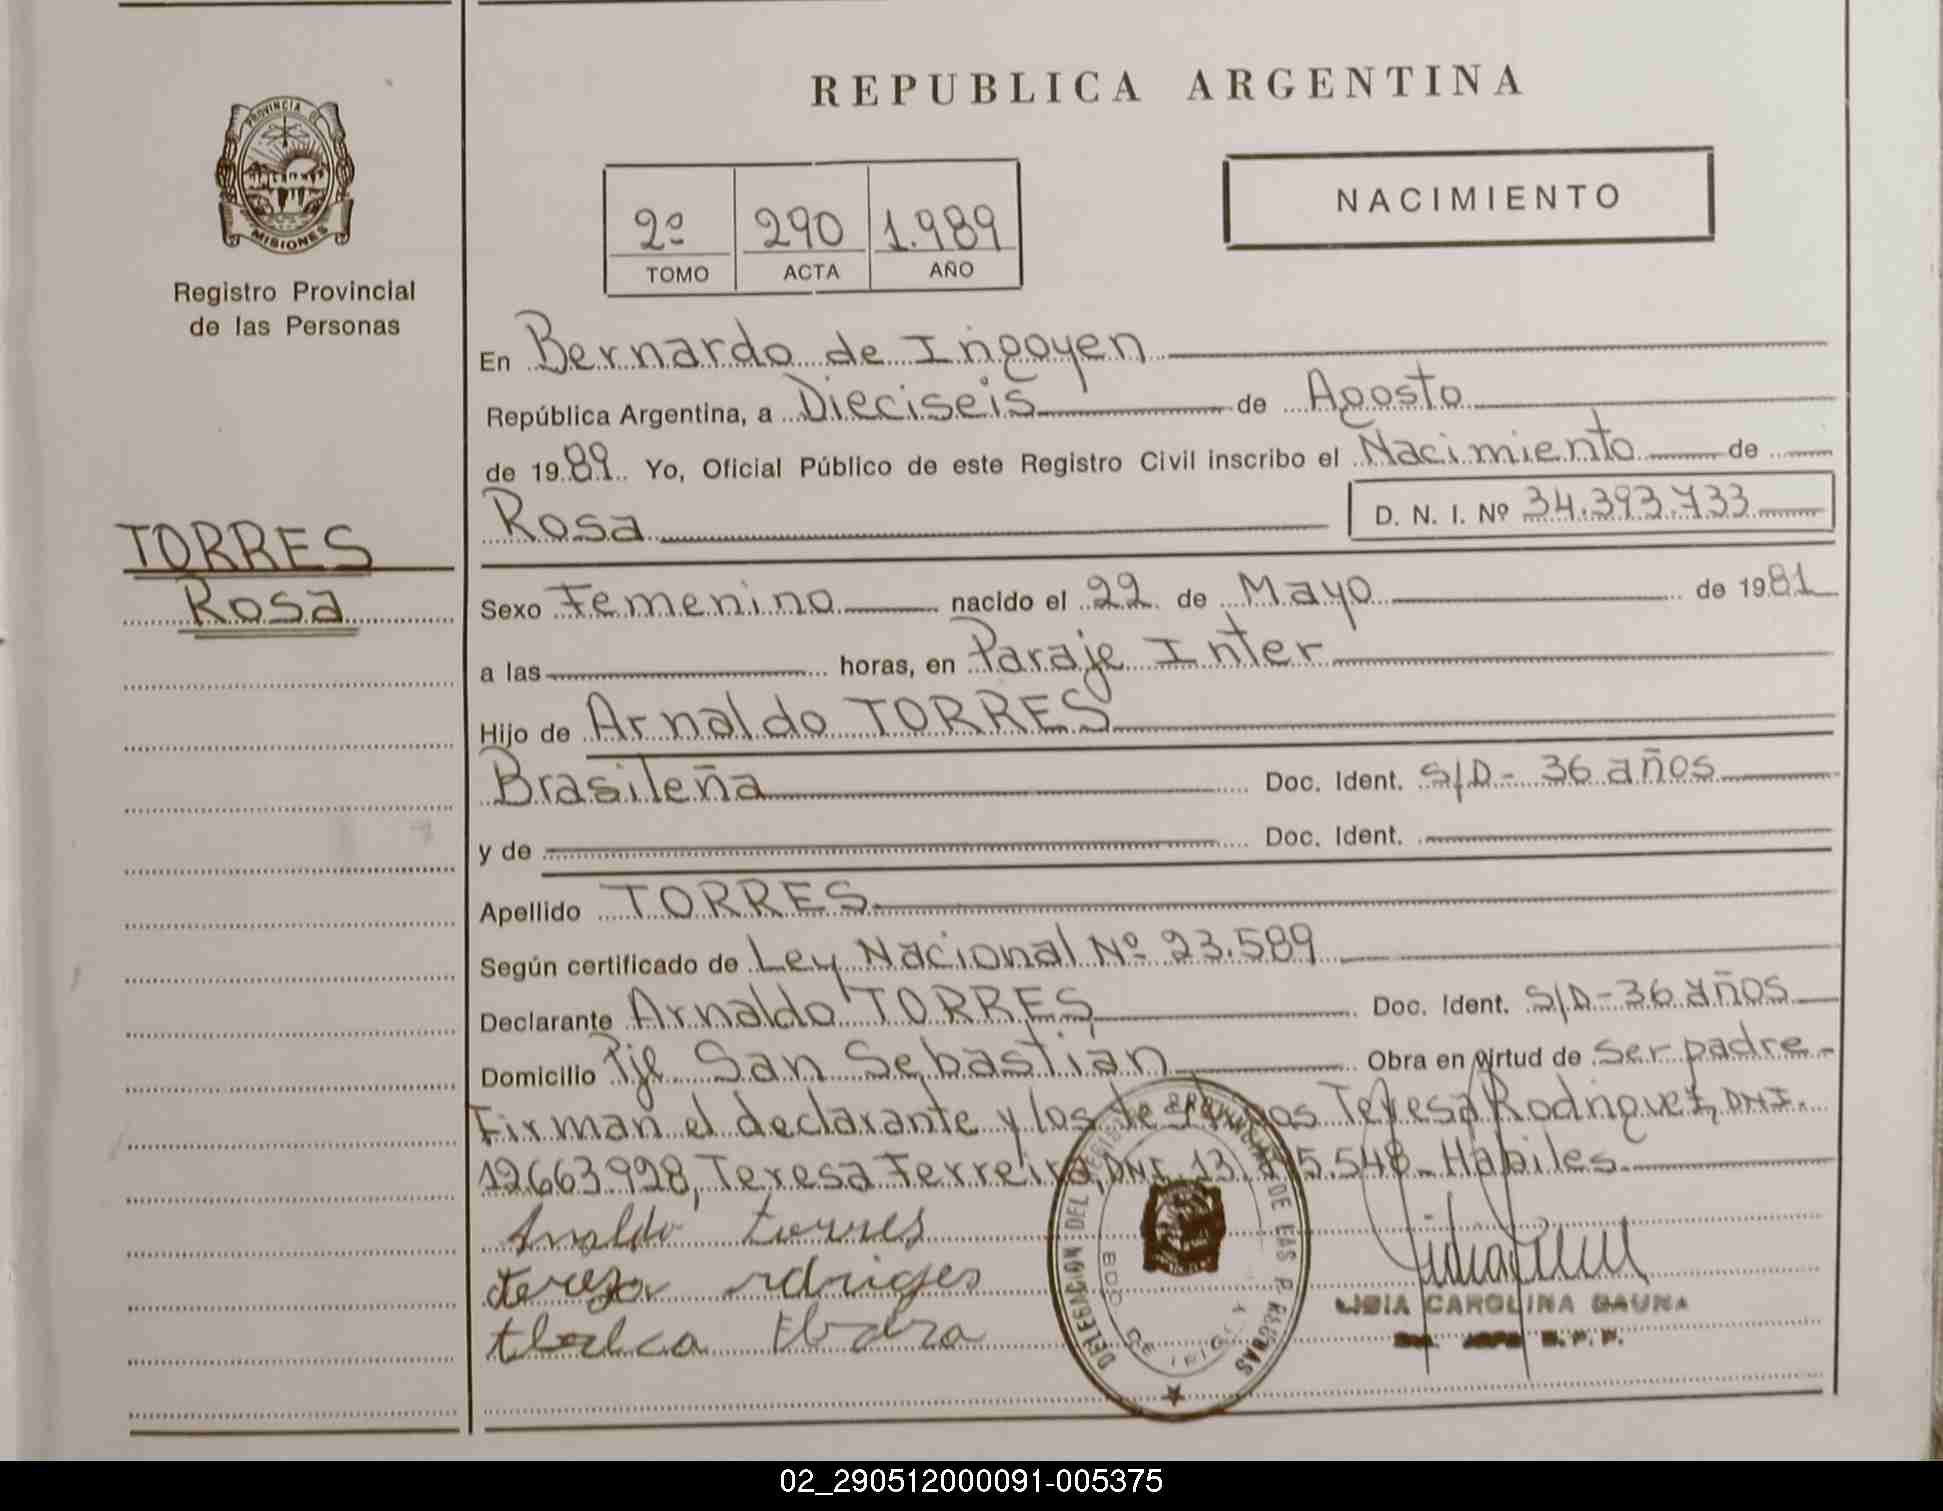 REPUBLICA ARGENTINA
PROVINCIA DE
MISIONES
Registro Provincial
de las Personas
2º 290 1.989
TOMO ACTA AÑO
NACIMIENTO
En Bernardo de Irigoyen
República Argentina, a Dieciseis de Agosto
de 1989 Yo, Oficial Público de este Registro Civil inscribo el Nacimiento de
Rosa D. N. I. Nº 34.393.733
TORRES
Rosa
Sexo Femenino nacido el 22 de Mayo de 1981
a las horas, en Paraje Inter
Hijo de Arnaldo TORRES
Brasileña Doc. Ident. S/D- 36 años
y de Doc. Ident.
Apellido TORRES
Según certificado de Ley Nacional Nº 23.589
Declarante Arnaldo TORRES Doc. Ident. S/D-36 años
Domicilio Pje San Sebastián Obra en virtud de ser padre-
Firman el declarante y los testigos Teresa Rodriguez, DNI.
12663.928, Teresa Ferreira, DNI. 13. 5.548- Hábiles
Arnaldo torres
tereza rdriges
DELEGACION DEL REGISTRO PROVINCIAL DE LAS PERSONAS
BDO DE IRIGOYEN
LIDIA CAROLINA GAUNA
02_290512000091-005375